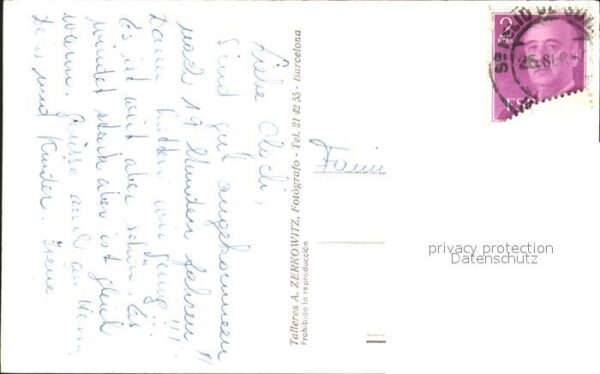 Liebe Oluch,
Sind gut angekommen
nach 17 Stunden fahren!!
Dann hatten wir genug!!!
Es ist weit aber schön. Es
windet stark aber ist gleich
warm. Grüsse auch an
und Kinder. Irene
Talleres A. ZERKOWITZ, Fotógrafo - Tel. 21 42 55 - Barcelona
Prohibida la reproducción
Fami
2
PTAS
25. SEP.
privacy protection
Datenschutz